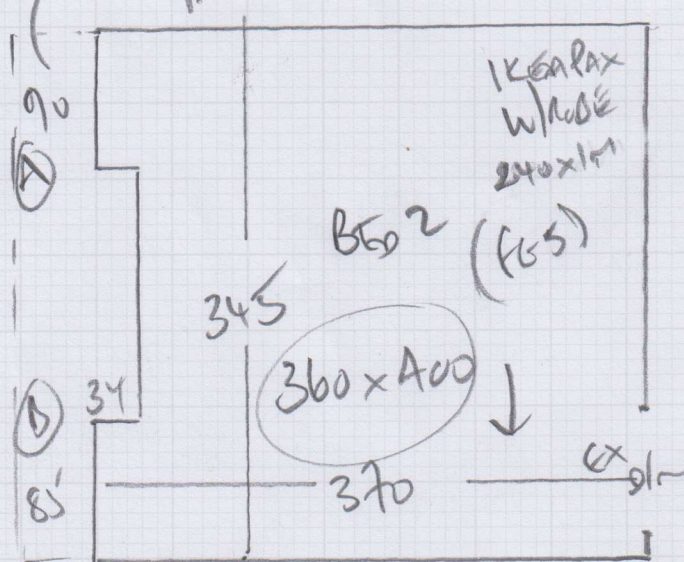 90
A
IKEA PAX
W/ROBE
240x1M
BED 2
345
360 x 400
34
B
85
370
EX
D/M